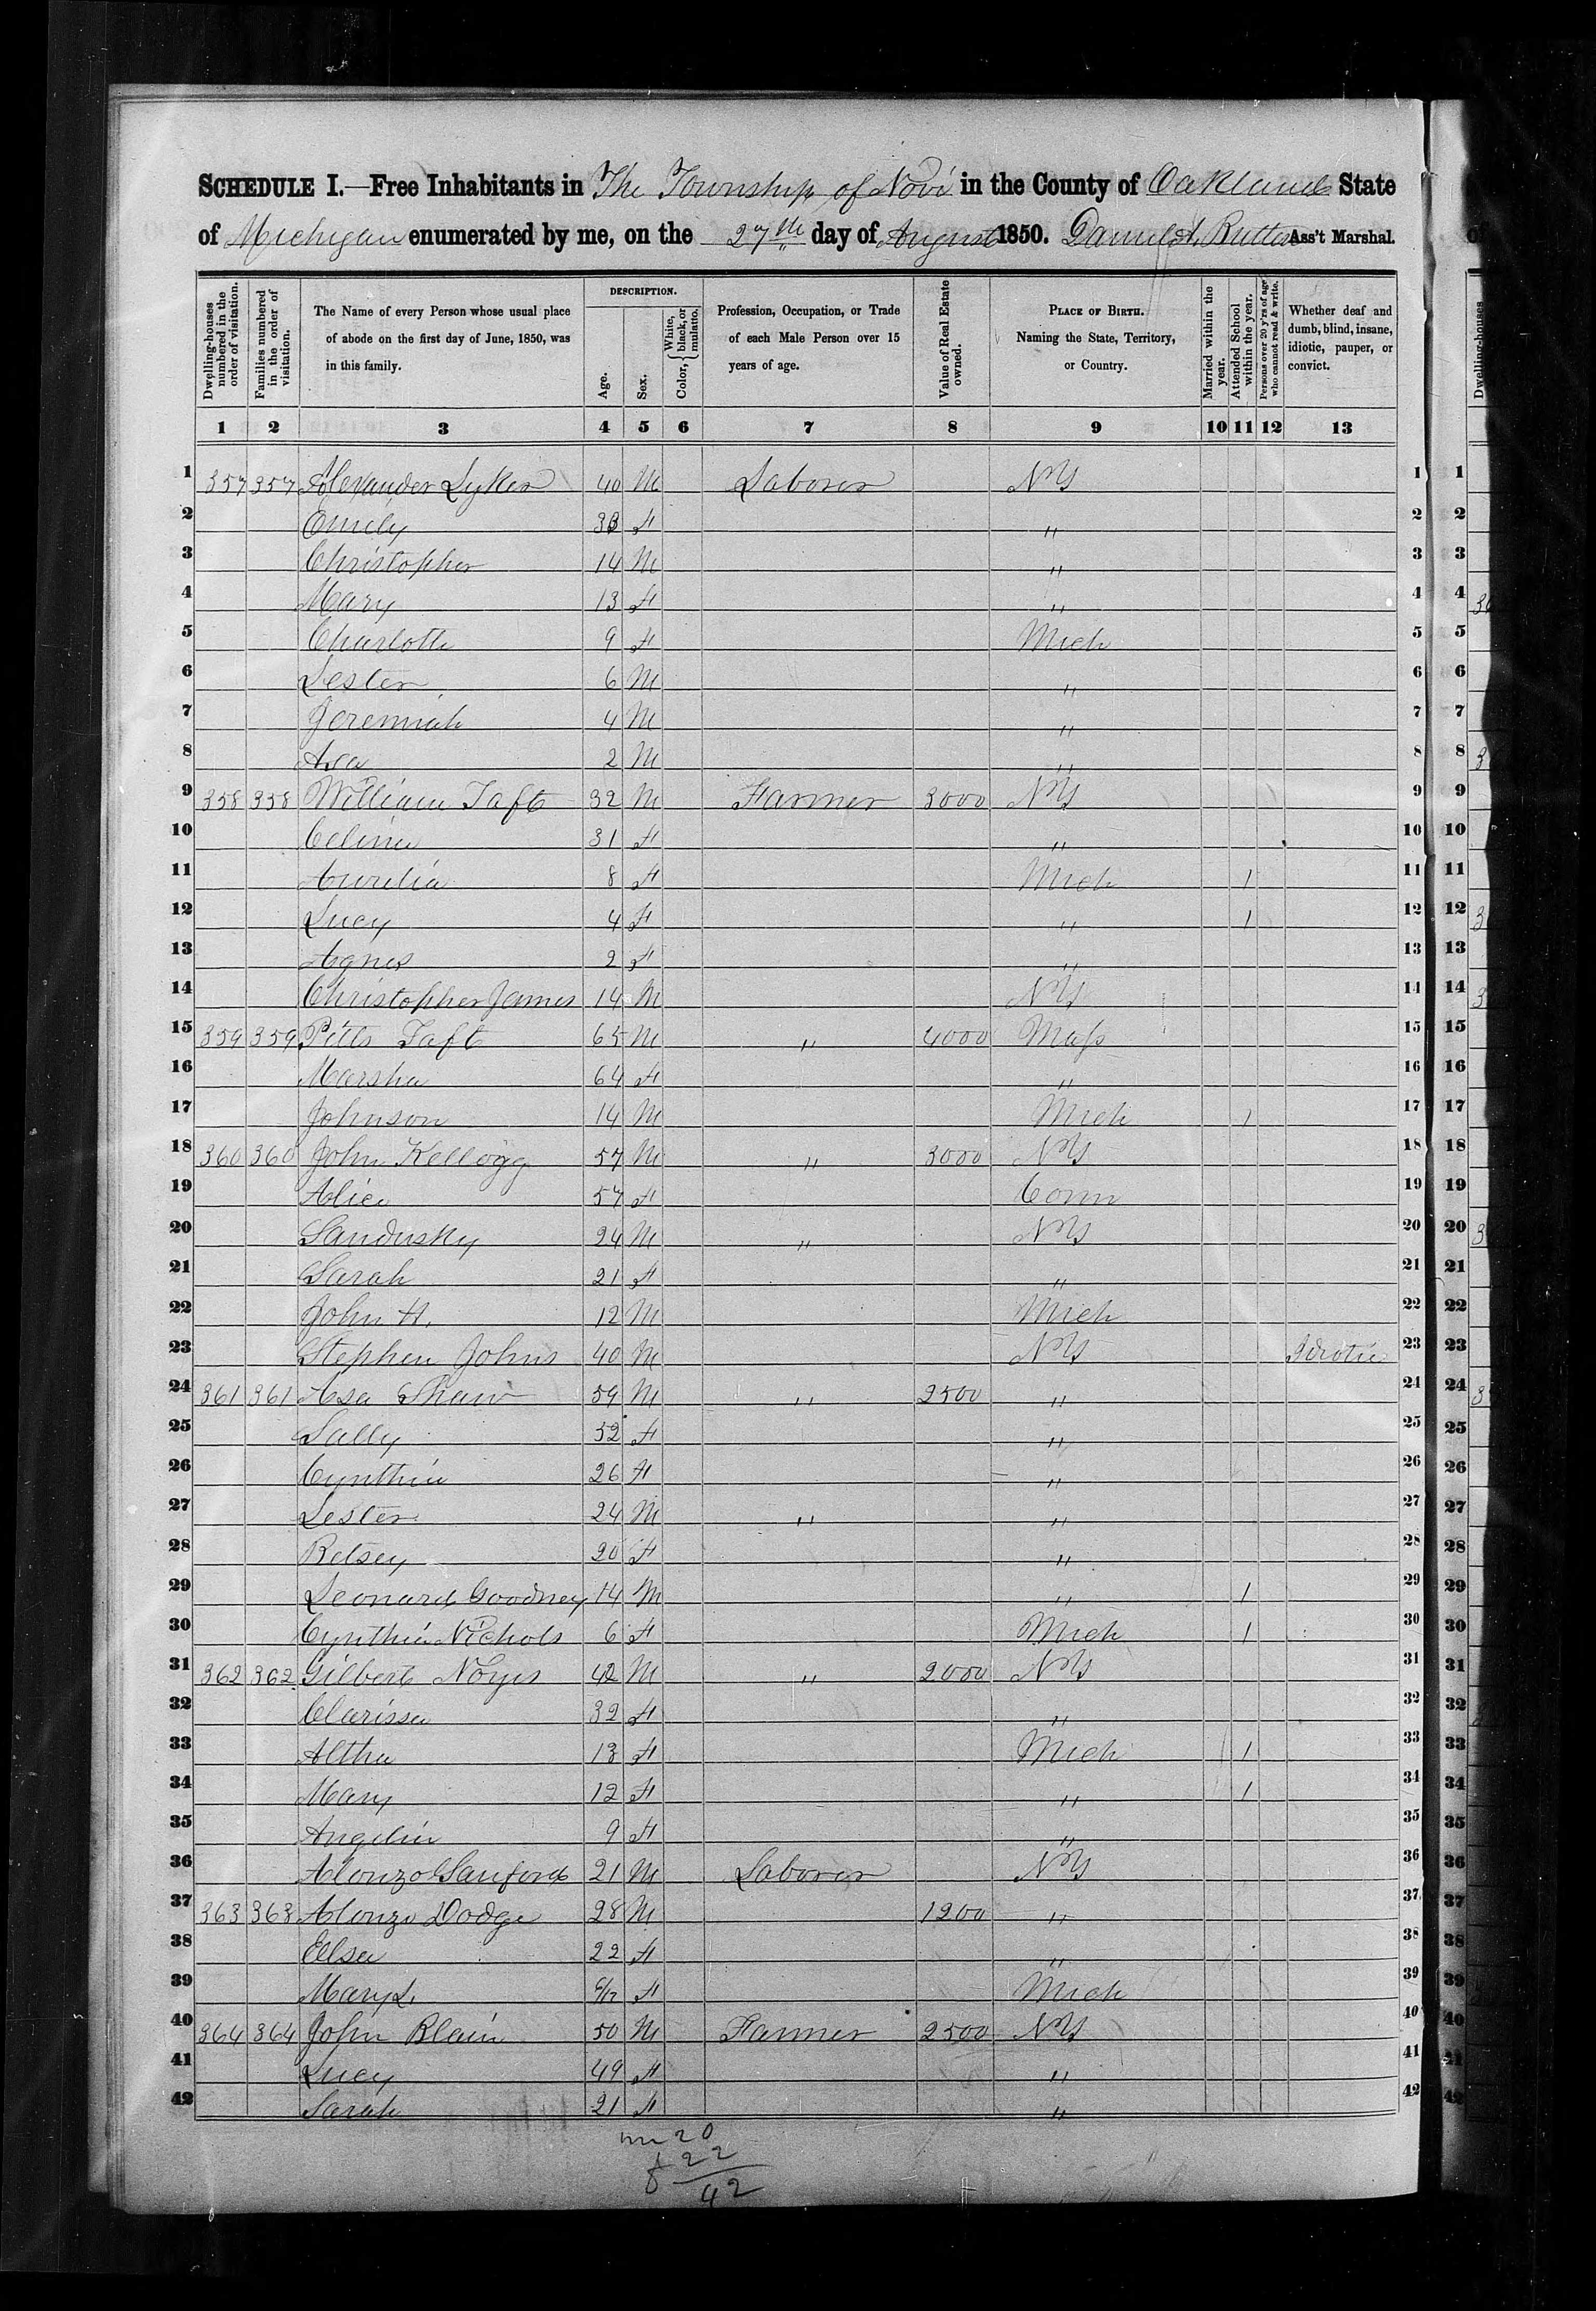 SCHEDULE I.—Free Inhabitants in The Township of Novi in the County of Oakland State
of Michigan enumerated by me, on the 27th day of August 1850. Daniel A. Butler Ass't Marshal.
Dwelling-houses numbered in the order of visitation.
Families numbered in the order of visitation.
The Name of every Person whose usual place of abode on the first day of June, 1850, was in this family.
DESCRIPTION.
Age.
Sex.
Color, { White, black, or mulatto.
Profession, Occupation, or Trade of each Male Person over 15 years of age.
Value of Real Estate owned.
PLACE OF BIRTH. Naming the State, Territory, or Country.
Married within the year.
Attended School within the year.
Persons over 20 y'rs of age who cannot read & write.
Whether deaf and dumb, blind, insane, idiotic, pauper, or convict.
1 2 3 4 5 6 7 8 9 10 11 12 13
1 357 357 Alexander Lyker 40 M Laborer NY 1
2 Emily 33 F " 2
3 Christopher 14 M " 3
4 Mary 13 F " 4
5 Charlotte 9 F Mich 5
6 Lester 6 M " 6
7 Jeremiah 4 M " 7
8 Asa 2 M " 8
9 358 358 William Taft 32 M Farmer 3000 NY 9
10 Celina 31 F " 10
11 Aurelia 8 F Mich 1 11
12 Lucy 4 F " 1 12
13 Agnes 2 F " 13
14 Christopher James 14 M NY 14
15 359 359 Pitts Taft 65 M " 4000 Mass 15
16 Marsha 64 F " 16
17 Johnson 14 M Mich 1 17
18 360 360 John Kellogg 57 M " 3000 NY 18
19 Alice 57 F Conn 19
20 Sandusky 24 M " NY 20
21 Sarah 21 F " 21
22 John H. 12 M Mich 22
23 Stephen Johns 40 M NY Idiotic 23
24 361 361 Asa Shaw 59 M " 2500 " 24
25 Sally 52 F " 25
26 Cynthia 26 F " 26
27 Lester 24 M " " 27
28 Betsey 20 F " 28
29 Leonard Goodney 14 M " 1 29
30 Cynthia Nichols 6 F Mich 1 30
31 362 362 Gilbert Noyes 42 M " 2000 NY 31
32 Clarissa 32 F " 32
33 Altha 13 F Mich 1 33
34 Mary 12 F " 1 34
35 Angelia 9 F " 35
36 Alonzo Sanford 21 M Laborer NY 36
37 363 363 Alonzo Dodge 28 M 1200 " 37
38 Ellsa 22 F " 38
39 Mary L. 6/12 F Mich 39
40 364 364 John Blain 50 M Farmer 2500 NY 40
41 Lucy 49 F " 41
42 Sarah 21 F " 42
m 20
f 22
42